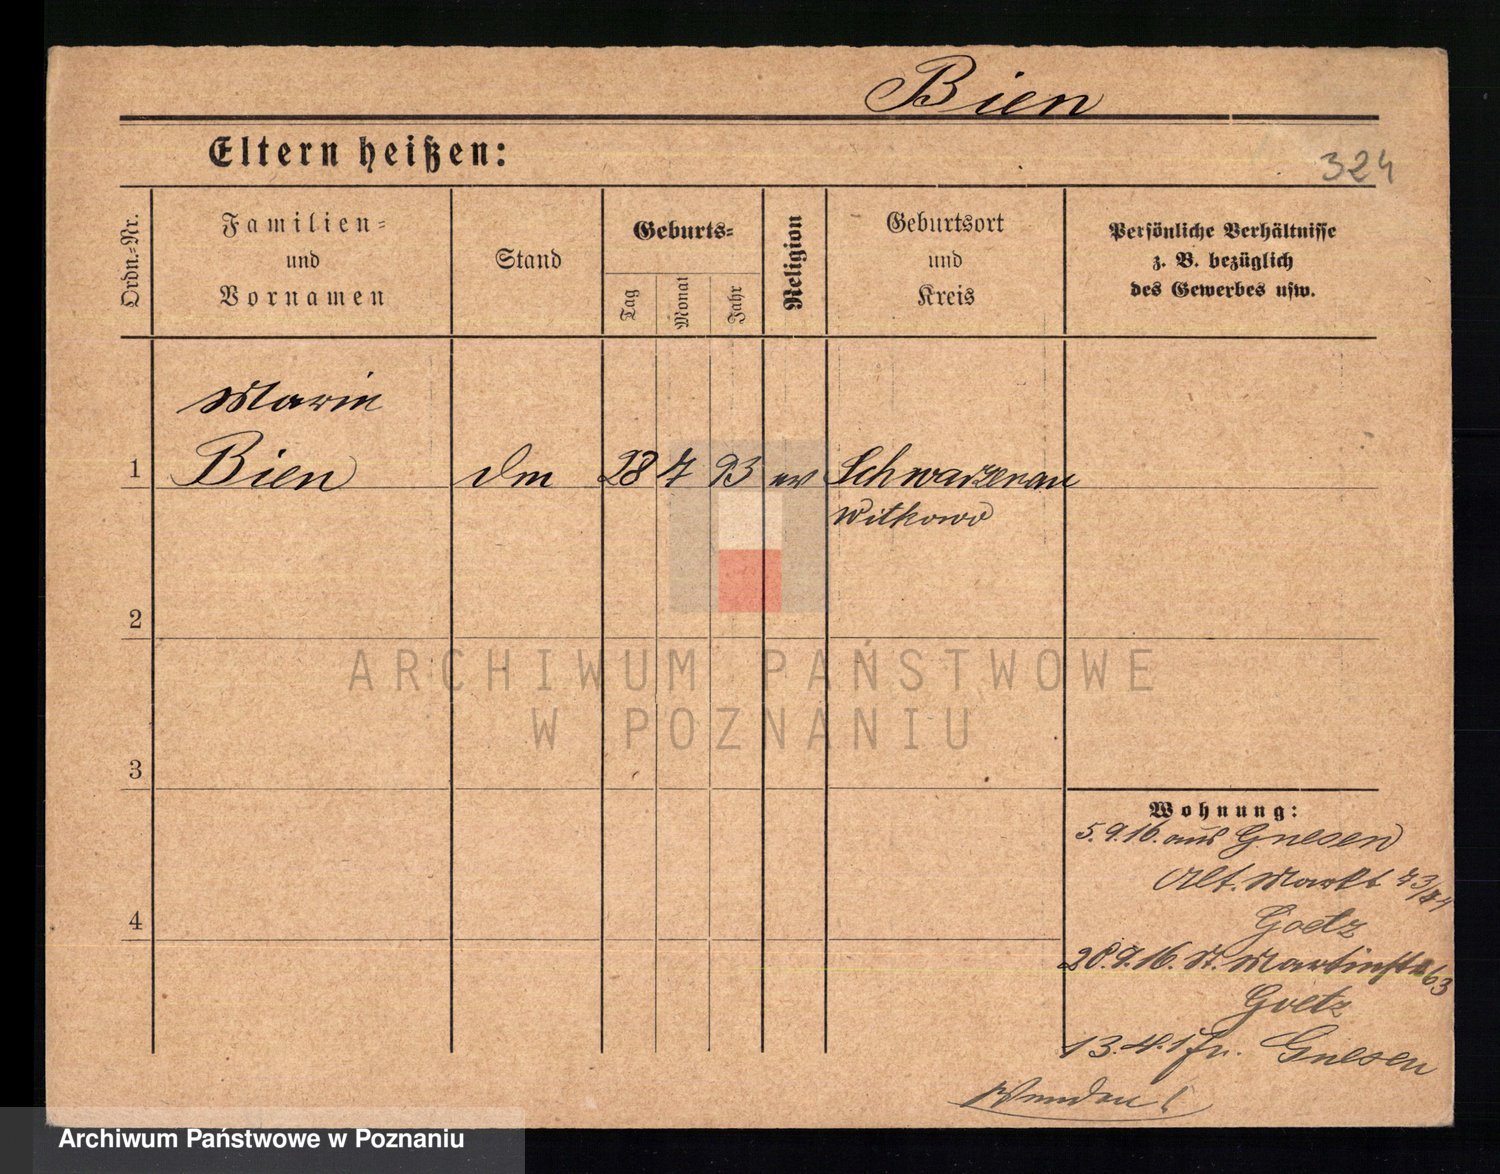 Bien
Eltern heißen:
324
Ordn.-Nr.
Familien-
und
Vornamen
Stand
Geburts-
Tag
Monat
Jahr
Religion
Geburtsort
und
Kreis
Persönliche Verhältnisse
z. B. bezüglich
des Gewerbes usw.
Marie
1 Bien 28 7 93 ev Schwarzenau
Witkowo
2
3
4
Wohnung:
5.9.16. aus Gnesen
Alt. Markt 73/74
Goetz
28.9.16. St. Martinstr 63
Goetz
13.4.17 Gnesen
Wenden!
ARCHIWUM PAŃSTWOWE
W POZNANIU
Archiwum Państwowe w Poznaniu